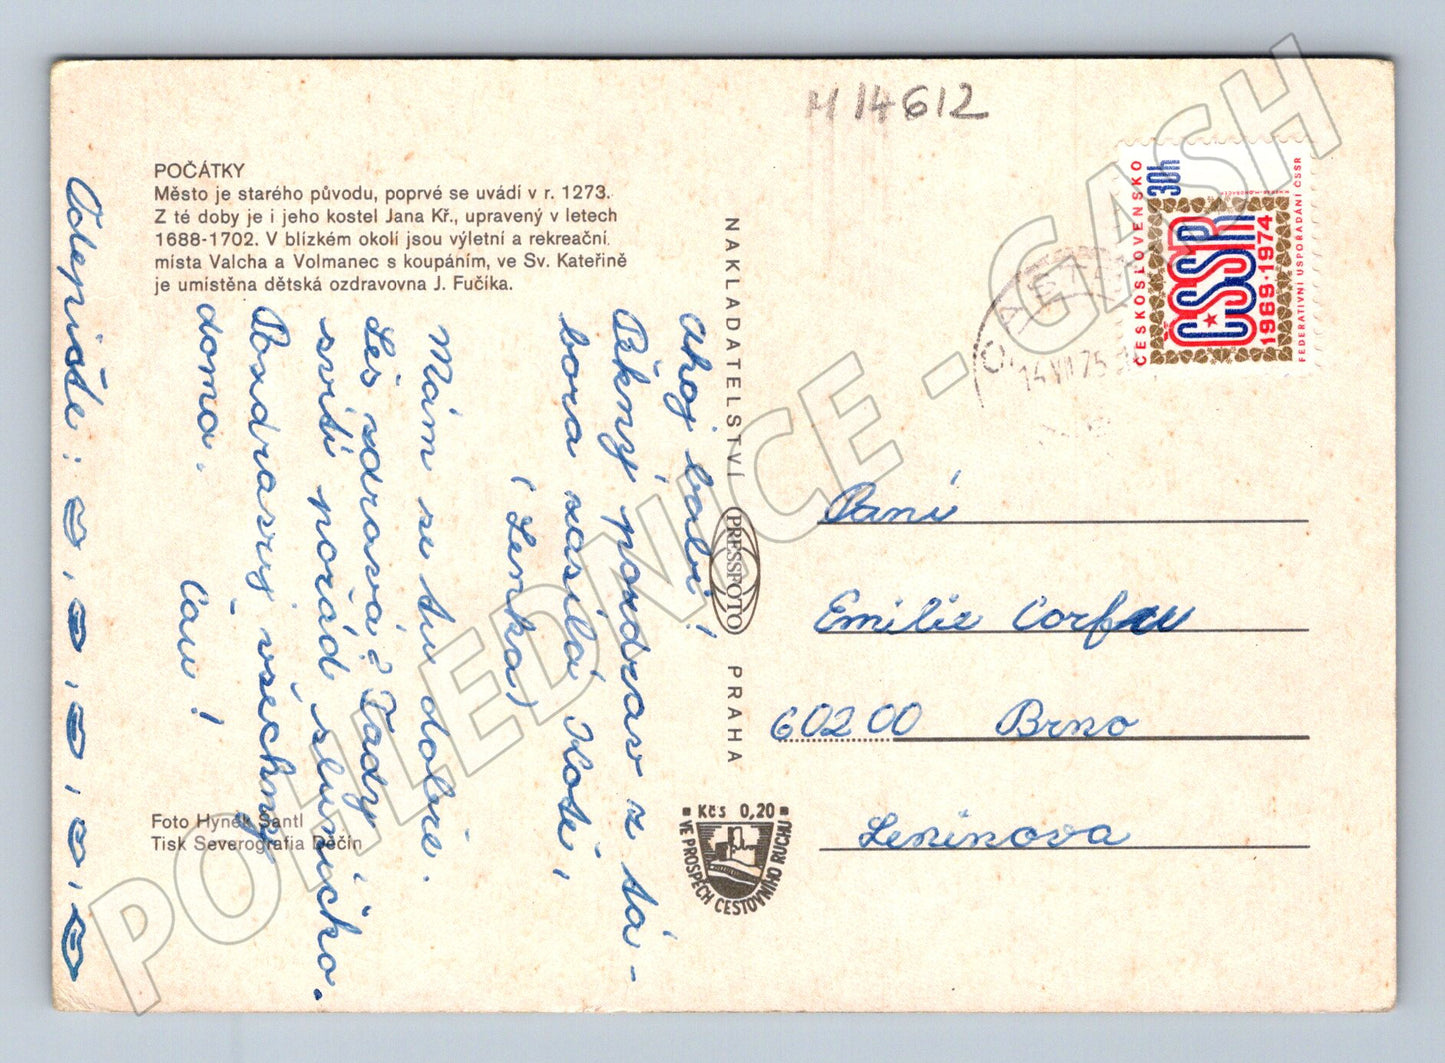 M 14612
POČÁTKY
Město je starého původu, poprvé se uvádí v r. 1273.
Z té doby je i jeho kostel Jana Kř., upravený v letech
1688-1702. V blízkém okolí jsou výletní a rekreační
místa Valcha a Volmanec s koupáním, ve Sv. Kateřině
je umístěna dětská ozdravovna J. Fučíka.
Ahoj babi!
Pěkný pozdrav z tá-
bora zasílá Kati,
(Lenka)
Mám se tu dobře.
Seš zdravá? Tady
svítí pořád sluníčko.
Pozdravuj všechny
doma.
Čau!
Odepište:
Foto Hynek Šantl
Tisk Severografia Děčín
NAKLADATELSTVÍ PRESSFOTO PRAHA
Kčs 0,20
VE PROSPĚCH CESTOVNÍHO RUCHU
ČESKOSLOVENSKO
30h
ČSSR
1969·1974
FEDERATIVNÍ USPOŘÁDÁNÍ ČSSR
14.VII.75
Paní
Emilie Corfau
60200 Brno
Leninova
POHLEDNICE - GASH